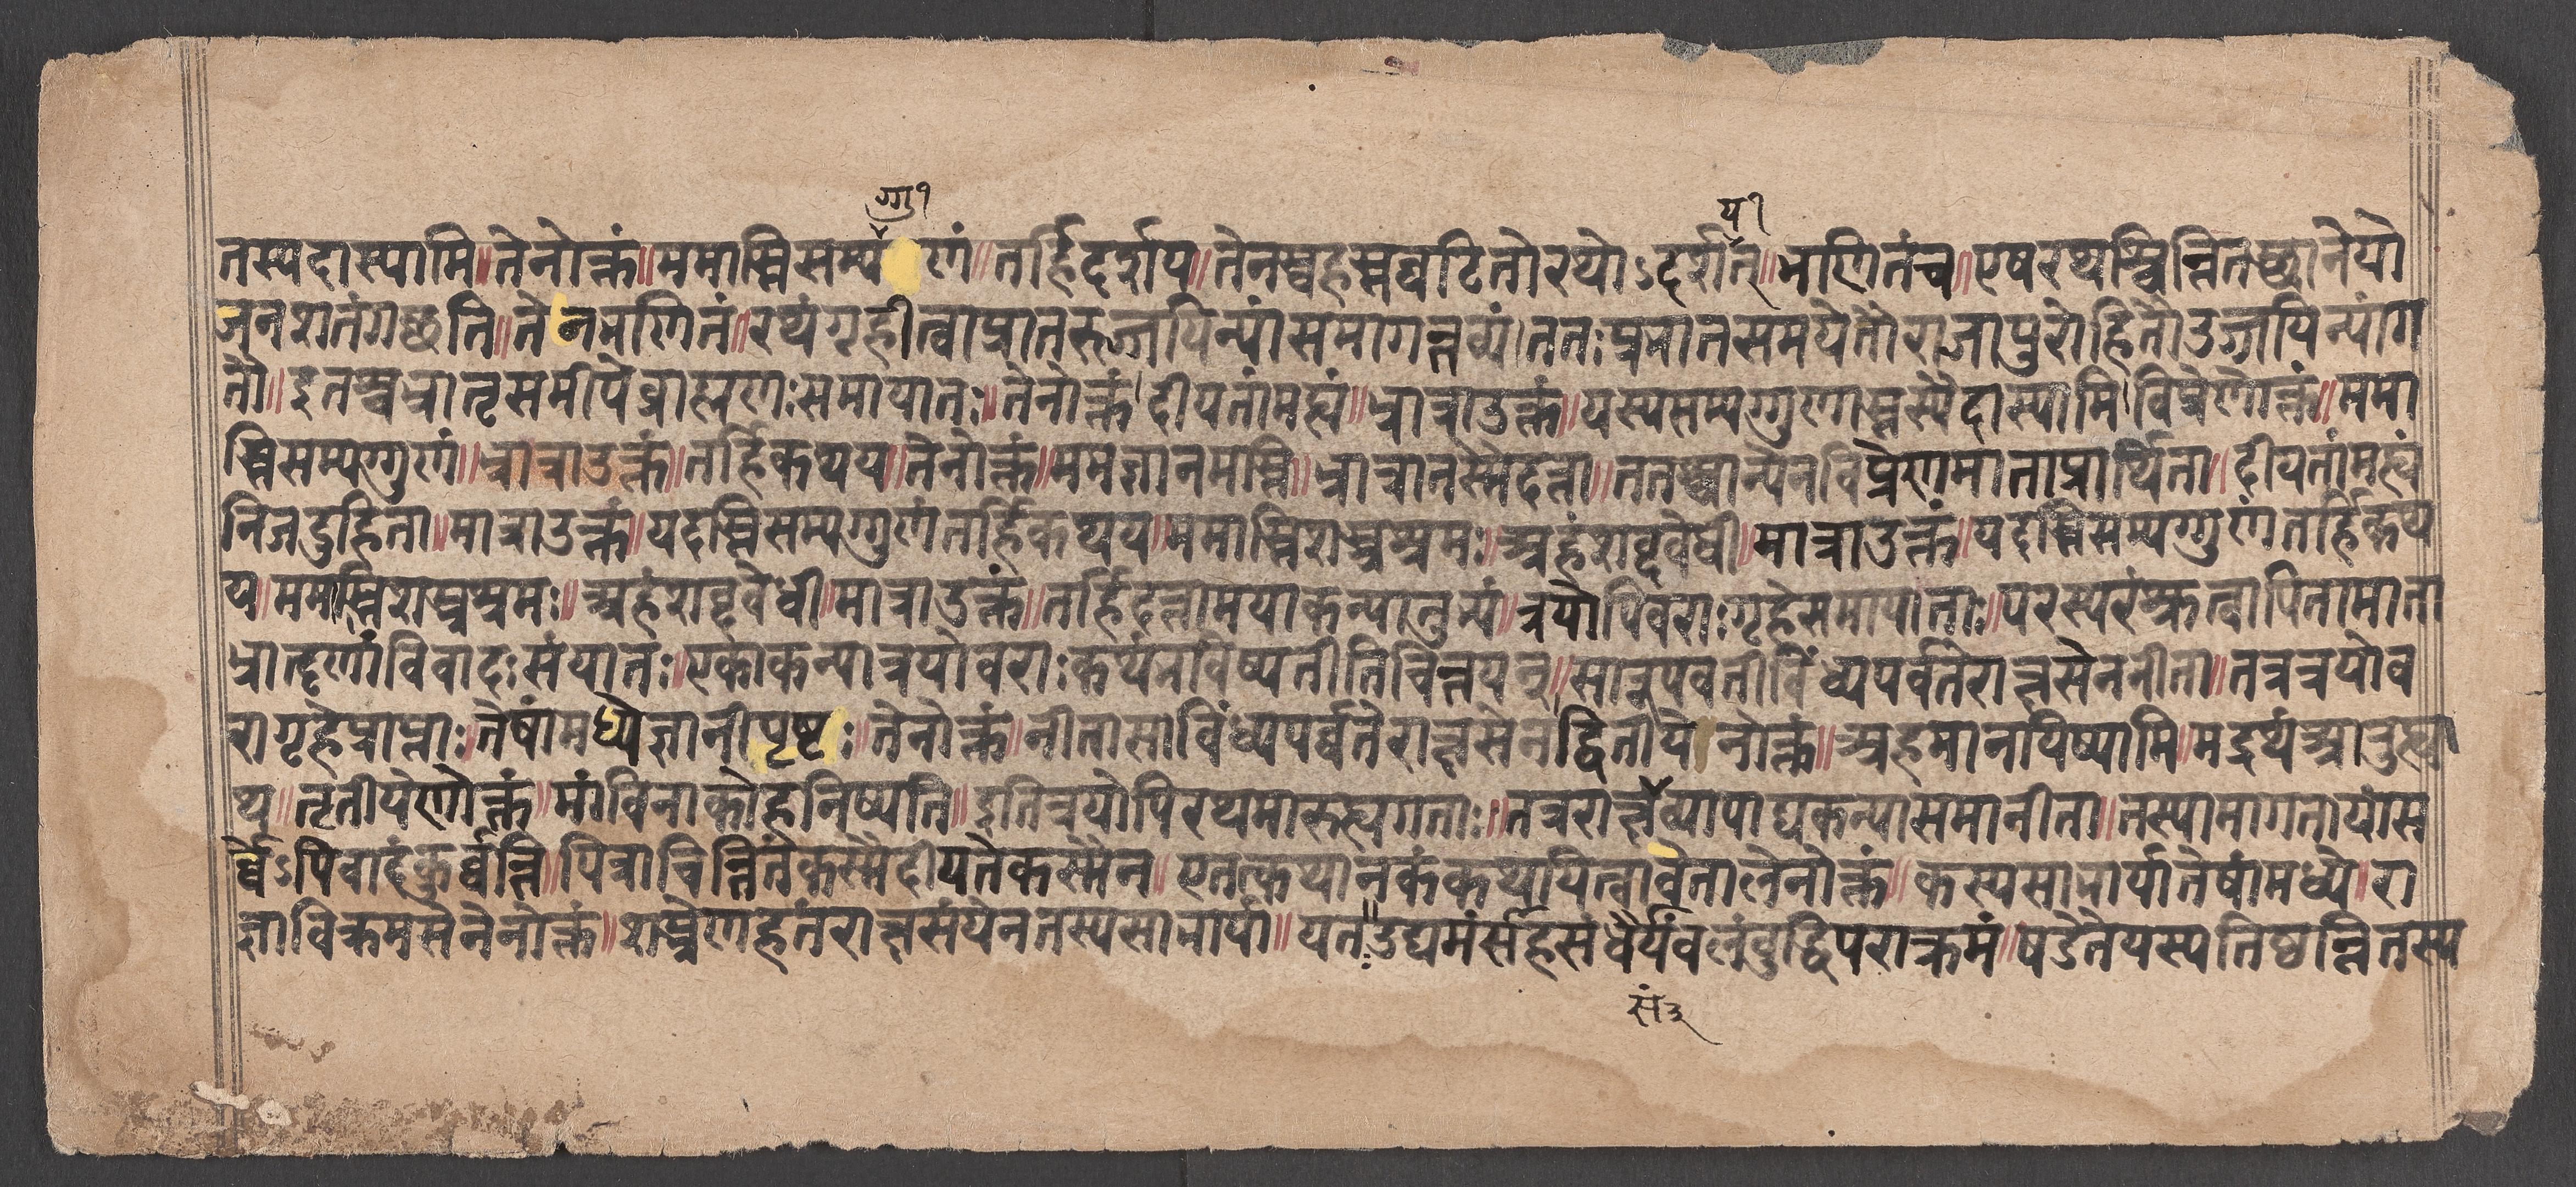 ग्गु१
य१
तस्यदास्यामि॥तेनोक्तं॥ममास्तिसम्य णं॥तर्हिदर्शय॥तेनस्वहस्तघटितोरथोऽदर्शत्॥भणितंच॥एषरथश्चिन्तितस्थानेयो
जनशतंगच्छति॥तेनभणितं॥रथंगृहीत्वाप्रातरुज्जयिन्यांसमागन्तव्यं।ततःप्रभातसमयेतौराजापुरोहितौउज्जयिन्यांग
तौ॥इतश्चभ्रातृसमीपेब्राह्मणःसमायातः॥तेनोक्तं।दीयतांमह्यं॥भ्रात्राउक्तं॥यस्यसम्यग्गुणास्तस्यैदास्यामि।विप्रेणोक्तं॥ममा
स्तिसम्यग्गुणं॥भ्रात्राउक्तं॥तर्हिकथय॥तेनोक्तं॥ममज्ञानमास्ति॥भ्रात्रातस्मैदत्ता॥ततश्चान्येनविप्रेणमाताप्रार्थिता॥दीयतांमह्यं
निजदुहिता॥मात्राउक्तं॥यदस्तिसम्यग्गुणंतर्हिकथय॥ममास्तिशास्त्रश्रमः॥अहंशब्दवेधी॥मात्राउक्तं॥यदस्तिसम्यग्गुणंतर्हिकथ
य॥ममास्तिशास्त्रश्रमः॥अहंशब्दवेधी॥मात्राउक्तं॥तर्हिदत्तामयाकन्यातुभ्यं॥त्रयोपिवराःगृहेसमायाताः॥परस्परंश्रुत्वापितामाता
भ्रातृणांविवादःसंयातः॥एकाकन्यात्रयोवराःकथंभविष्यतीतिचिन्तयन्॥सारूपवतीविंध्यपर्वतेराक्षसेननीता॥तत्रत्रयोव
रागृहेप्राप्ताः॥तेषांमध्येज्ञानीपृष्टः॥तेनोक्तं॥नीतासाविंध्यपर्व्वतेराक्षसेनद्वितीयेनोक्तं॥अहमानयिष्यामि॥मद्रथंआरुह्य
थ॥तृतीयेणोक्तं॥मांविनाकोहनिष्यति॥इतित्रयोपिरथमारुह्यगताः॥तत्रराक्षव्यापाद्यकन्यासमानीता॥तस्यामागतायांस
र्व्वेऽपिवादंकुर्व्वन्ति॥पित्राचिन्तितंकस्मैदीयतेकस्मैन॥एतत्कथानकंकथयित्वावेतालेनोक्तं॥कस्यसाभार्यातेषांमध्ये॥रा
ज्ञाविक्रमसेनेनोक्तं॥शस्त्रेणहतंराक्षसंयेनतस्यसाभार्या॥यतःउद्यमंसहसंधैर्यंबलंबुद्धिपराक्रमं॥षडेतेयस्यतिष्ठन्तितस्य
सं३